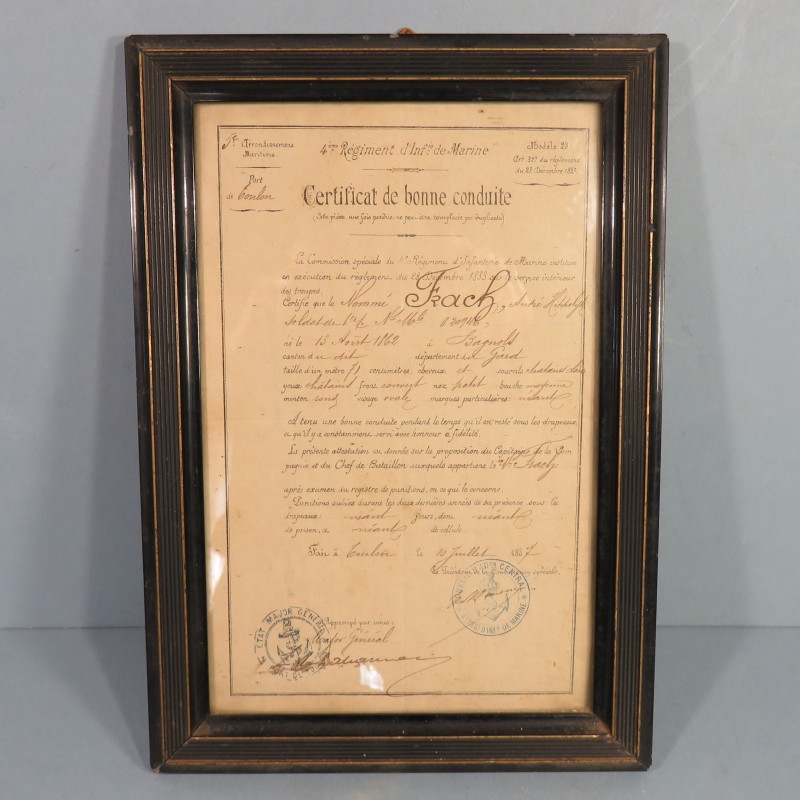 5e Arrondissement
Maritime
Port
de Toulon
4ème Régiment d'Infrie de Marine
Modèle 29
Art. 327 du règlement
du 28 Décembre 1883
Certificat de bonne conduite
(Cette pièce, une fois perdue, ne peut être remplacée par duplicata)
La Commission spéciale du 4e Régiment d'Infanterie de Marine instituée
en exécution du règlement du 28 Décembre 1883 sur le service intérieur
des troupes,
Certifie que le Nommé Frach, André Hippolyte
Soldat de 1re
né le 13 Août 1862 à Bagnols
canton du dit département du Gard
taille d'un mètre 71 centimètres, cheveux et sourcils châtains
yeux châtains front couvert nez petit bouche moyenne
menton rond visage ovale marques particulières: néant
A tenu une bonne conduite pendant le temps qu'il est resté sous les drapeaux,
et qu'il y a constamment servi avec honneur & fidélité.
La présente attestation est donnée sur la proposition du Capitaine de la Com
pagnie et du Chef de Bataillon auxquels appartient le Frach
après examen du registre de punitions, en ce qui le concerne.
Punitions subies durant les deux dernières années de sa présence sous les
drapeaux: néant jours, dont néant
de prison, et néant de cellule.
Fait à Toulon le 10 Juillet 1887
Le Président de la Commission spéciale,
CENTRAL
DE MARINE
Approuvé par nous:
Major Général
ETAT MAJOR GENERAL